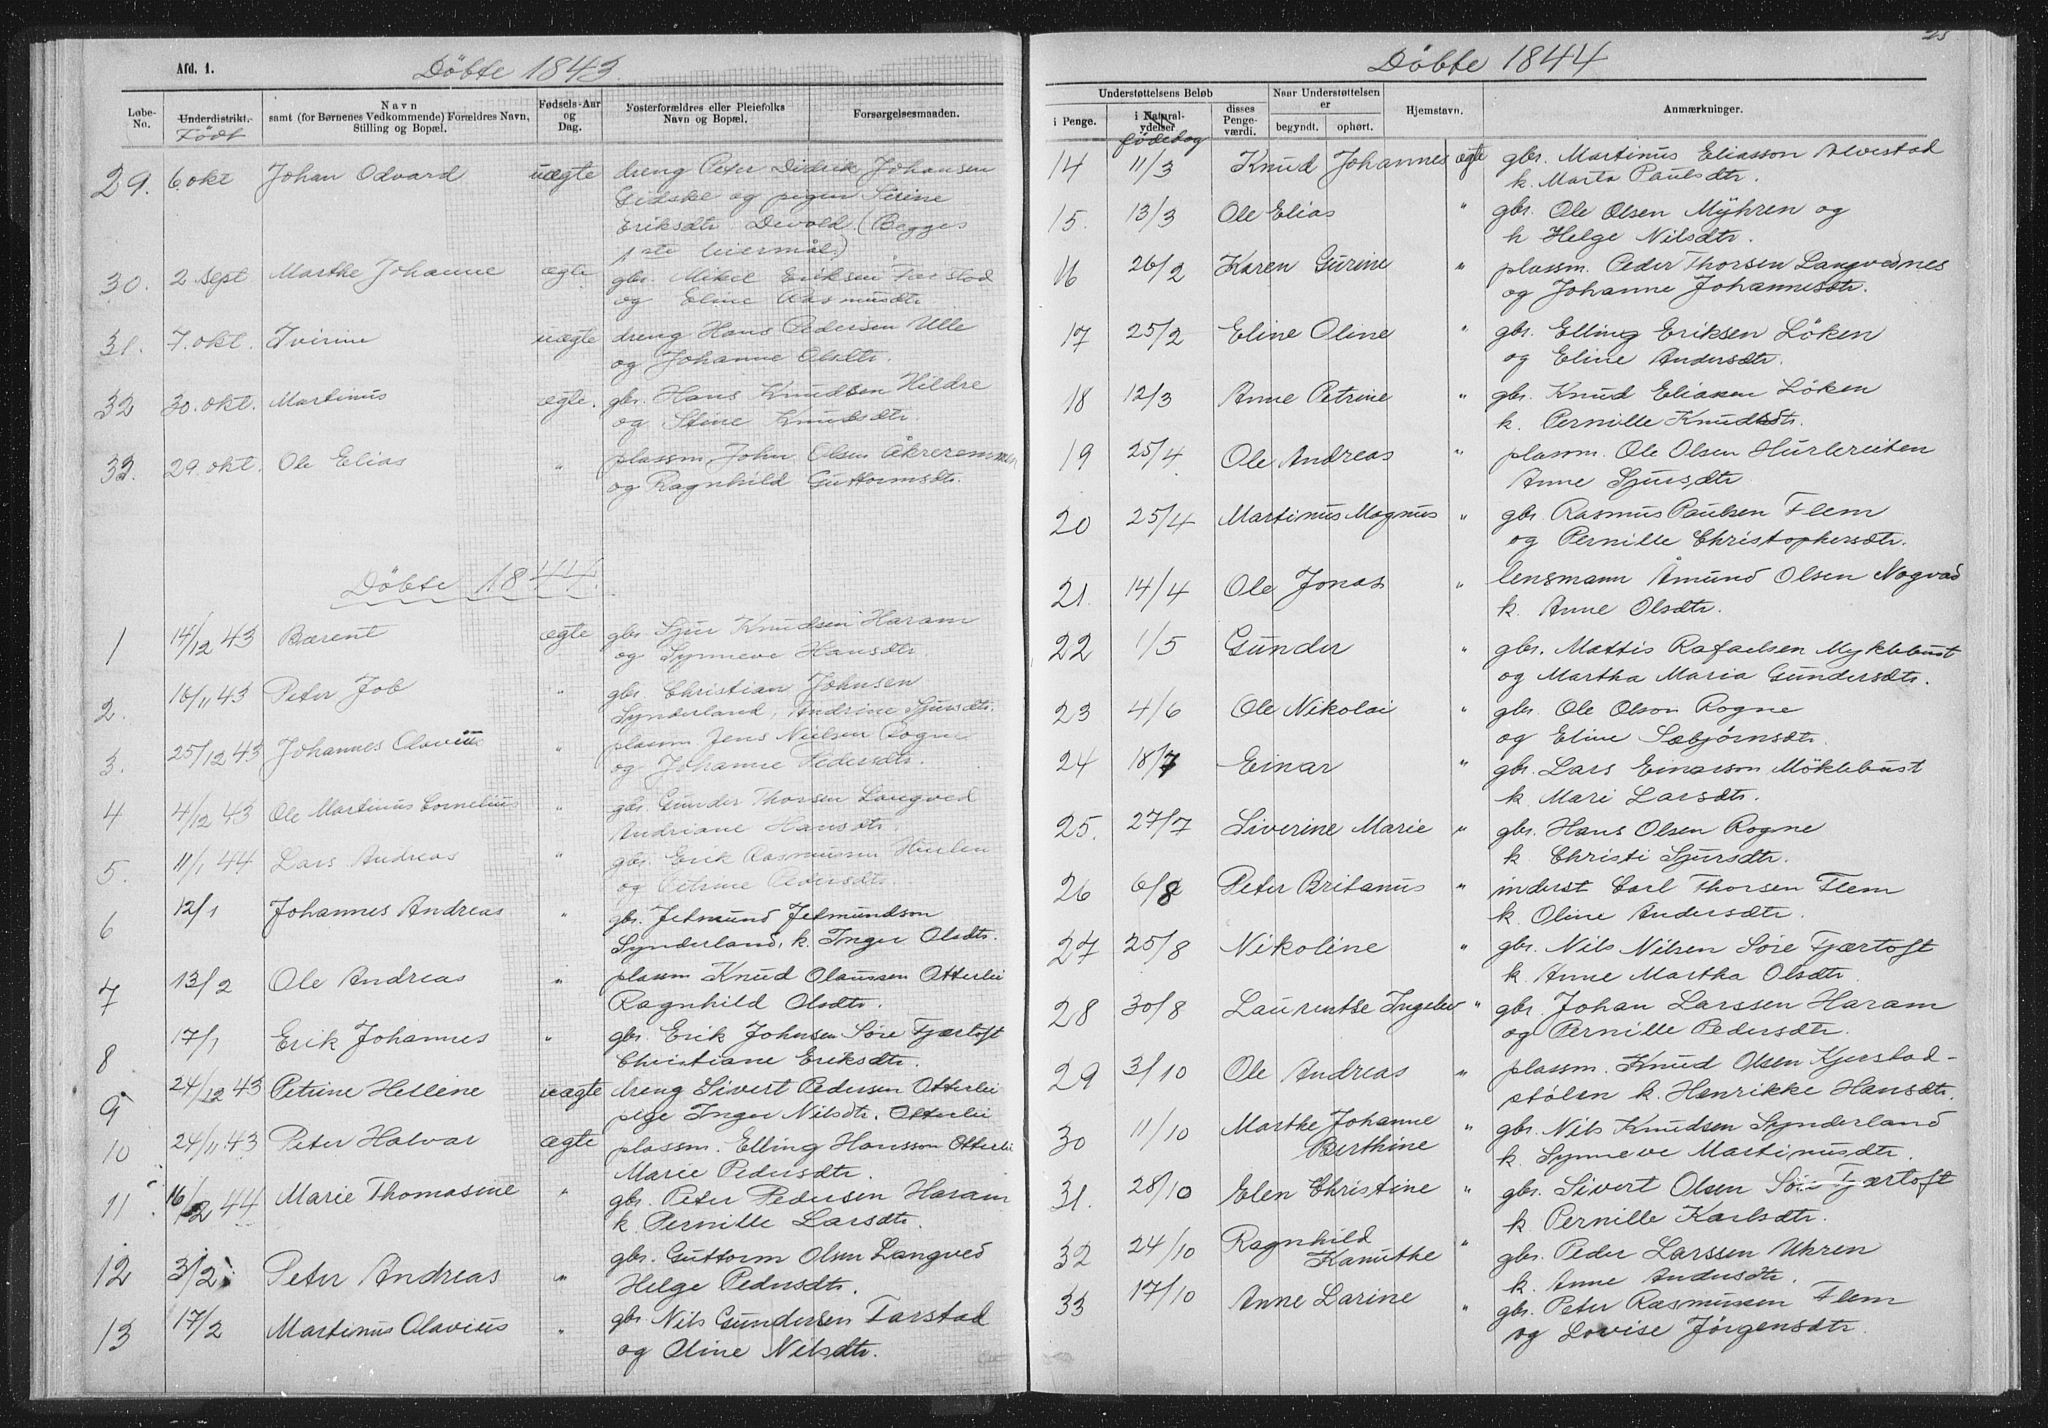 Afd. 1.
Döbte 1843.
Løbe-No.
Underdistrikt.
Født
Navn
samt (for Børnenes Vedkommende) Forældres Navn,
Stilling og Bopæl.
Fødsels-Aar
og
Dag.
Fosterforældres eller Pleiefolks
Navn og Bopæl.
Forsørgelsesmaaden.
29. 6 okt Johan Odvard uægte dreng Peter Didrik Johansen
Gidske og pigen Sirine
Eriksdtr. Devold. (Begges
1ste leiermål)
30. 2 sept Marthe Johanne ægte gbr. Mikel Eriksen Farstad
og Eline Rasmusdtr.
31. 7. okt. Ivirine uægte dreng Hans Pedersen Ulle
og Johanne Olsdtr.
32 30. okt. Martinus ægte. gbr. Hans Knudsen Hildre
og Stine Knudsdtr
33. 29. okt. Ole Elias " plassm. John Olsen Åkreremmen
og Ragnhild Guttormsdtr.
Döbte 1844.
1 14/12 43 Bærent ægte gbr. Sjur Knudsen Haram
og Synneve Hansdtr.
2. 10/11 43 Peter Job " gbr. Christian Johnsen
Synderland, Andrine Sjursdtr.
3. 25/12 43 Johannes Olavius " plassm. Jens Nielsen Rogne
og Johanne Pedersdtr.
4 4/12 43 Ole Martinus Cornelius " gbr. Gunder Thorsen Langved
Andriane Hansdtr.
5. 11/1 44 Lars Andreas " gbr. Erik Rasmussen Hurlen
og Petrine Pedersdtr.
6 12/1 Johannes Andreas " gbr. Jetmund Jetmundson
Synderland, k. Inger Olsdtr.
7 13/2 Ole Andreas " plassm Knud Olaussen Otterlei
Ragnhild Olsdtr.
8 17/1 Erik Johannes " gbr. Erik Johnsen Söre Fjærtoft
Christiane Eriksdtr.
9 24/12 43 Petrine Hellene uægte dreng Sivert Pedersen Otterlei
pige Inger Nilsdtr. Otterlei
10 24/11 43 Peter Halvar ægte plassm. Elling Hansson Otterlei
Marie Pedersdtr.
11 16/2 44 Marie Thomasine " gbr. Peter Pedersen Haram
k. Pernille Larsdtr.
12 3/2 Peter Andreas " gbr. Guttorm Olsen Langved
Helge Pedersdtr.
13 17/2 Martinus Olavius " gbr. Nils Gundersen Farstad
og Oline Nilsdtr.
25
Döbte 1844
Understøttelsens Beløb
i Penge.
i Natural-
ydelser
fødedag
disses
Penge-
værdi.
Naar Understøttelsen
er
begyndt.
ophørt.
Hjemstavn.
Anmærkninger.
14 11/3 Knud Johannes ægte gbr. Martinus Eliasson Alvestad
k. Marta Paulsdtr.
15. 13/3 Ole Elias " gbr. Ole Olsen Mÿhren og
k Helge Nilsdtr.
16 26/2 Karen Gurine " plassm. Peder Thorsen Langvednes
og Johanne Johannesdtr.
17 25/2 Eline Oline " gbr. Elling Eriksen Löken
og Eline Andersdtr.
18 12/3 Anne Petrine " gbr. Knud Eliassen Löken
k. Pernille Knudsdtr.
19 25/4 Ole Andreas " plassm. Ole Olsen Hurlereiten
Anne Sjursdtr.
20 25/4 Martinus Magnus " gbr. Rasmus Paulsen Flem
og Pernille Christophersdtr.
21. 14/4 Ole Jonas " lensmann Åmund Olsen Nogvad
k. Anne Olsdtr.
22 1/5 Gunder " gbr. Mattis Rafaelsen Myklebust
og Martha Maria Gundersdtr.
23 4/6 Ole Nikolai " gbr. Ole Olson Rogne
og Eline Sæbjørnsdtr.
24 18/7 Einar " gbr. Lars Einarson Möklebust
k. Mari Larsdtr.
25. 27/7 Siverine Marie " gbr. Hans Olsen Rogne
k. Christi Sjursdtr.
26 6/8 Peter Britanus " inderst Carl Thorsen Flem
k. Oline Andersdtr.
27 25/8 Nikoline " gbr. Nils Nilsen Söre Fjærtoft
k. Anne Martha Olsdtr.
28 30/8 Laurentse Ingelev " gbr. Johan Larssen Haram
og Pernille Pedersdtr.
29 3/10 Ole Andreas " plassm. Knud Olsen Kjerstad-
stølen k. Henrikke Hansdtr.
30 11/10 Marthe Johanne
Berthine " gbr. Nils Knudsen Synderland
k. Synneve Martinusdtr.
31. 28/10 Elen Christine " gbr. Sivert Olsen Söre Fjærtoft
k. Pernille Karlsdtr.
32 24/10 Ragnhild
Kanuthe " gbr. Peder Larssen Uhren
k. Anne Andersdtr.
33 17/10 Anne Larine " gbr. Peter Rasmussen Flem
og Lovise Jørgensdtr.